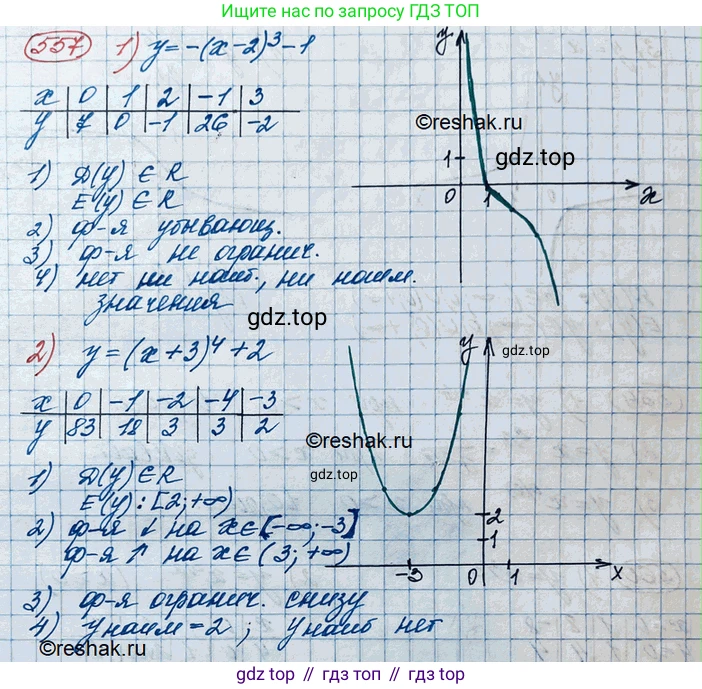 Ищите по запросу ГДЗ ТОП
557 1) y=-(x-2)³-1
x 0 1 2 -1 3
y 7 0 -1 26 -2
1) D(y) ∈ R
E(y) ∈ R
2) ф-я убывающ.
3) ф-я не огранич.
4) нет ни наиб., ни наим.
значения
y
©reshak.ru
1
gdz.top
0
1
x
gdz.top
2) y=(x+3)⁴+2
x 0 -1 -2 -4 -3
y 83 18 3 3 2
1) D(y) ∈ R
E(y): [2; +∞)
2) ф-я ↓ на x∈[-∞; -3]
ф-я ↑ на x∈(3; +∞)
3) ф-я огранич. снизу
4) y наим = 2 ; y наиб нет
y
gdz.top
©reshak.ru
gdz.top
2
1
-3
0
1
x
©reshak.ru
gdz top // гдз топ // gdz.top